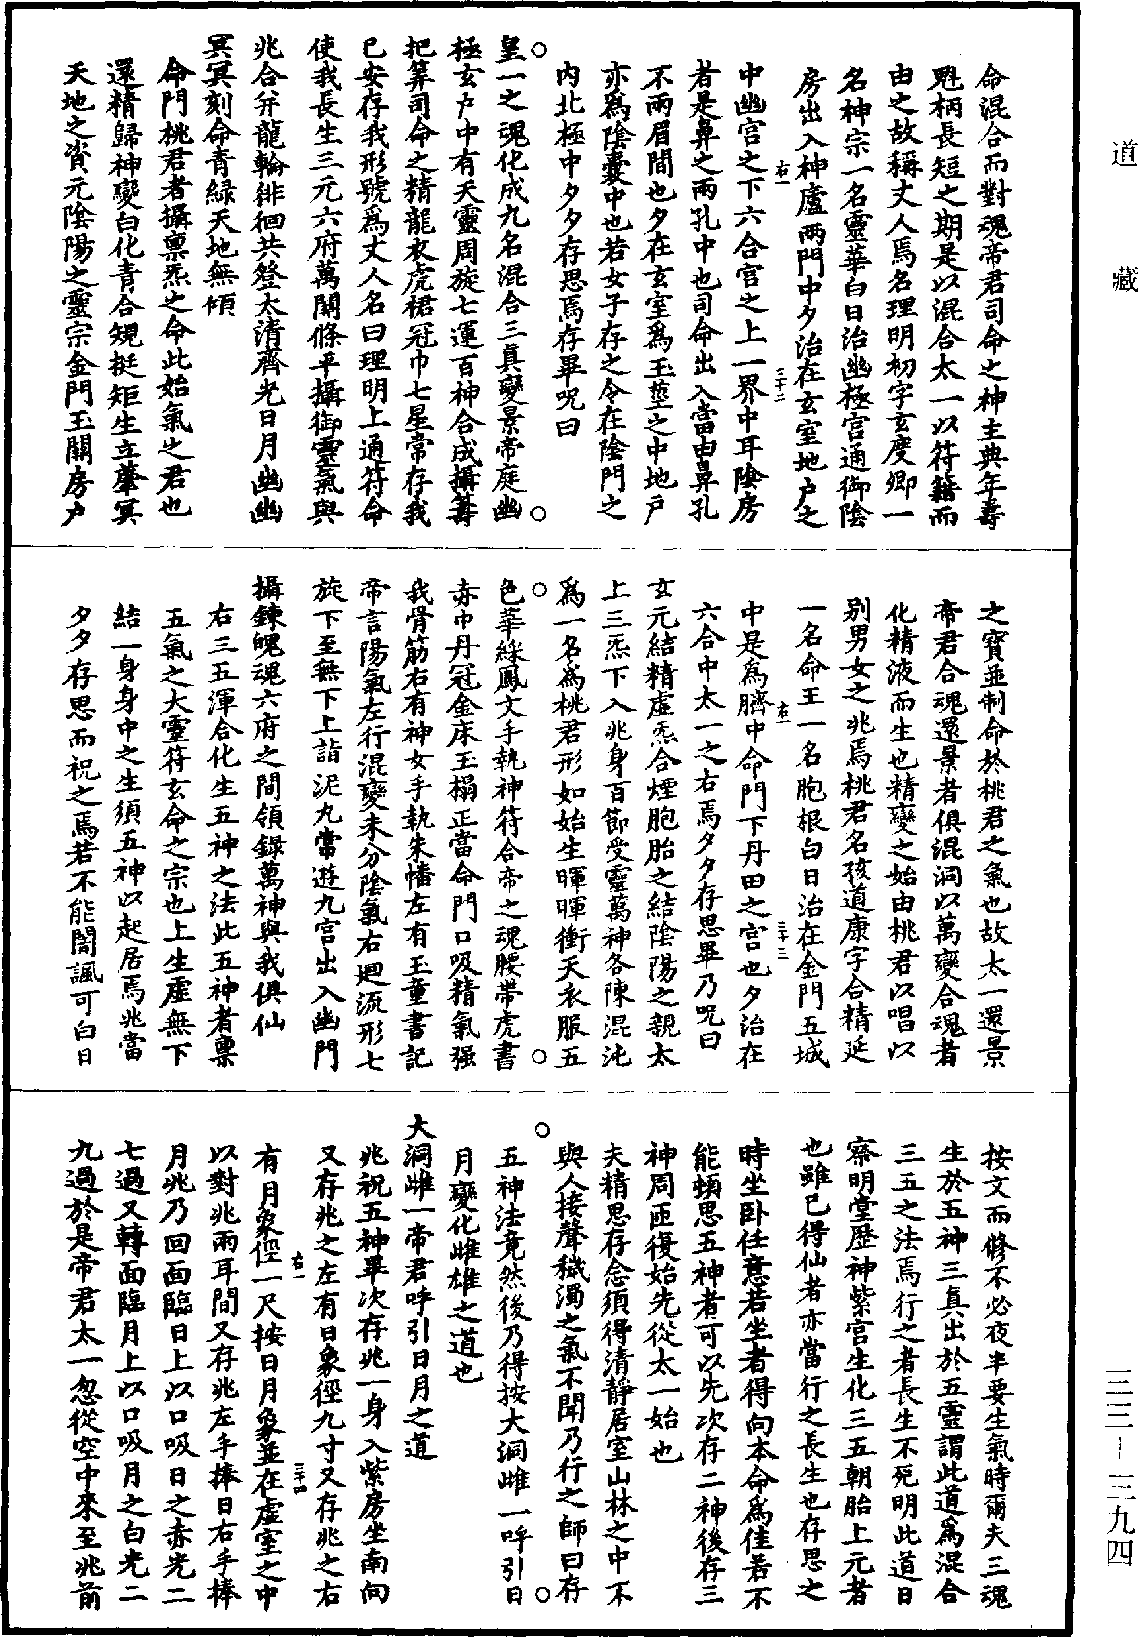 道藏
三三-三九四
命混合而對魂帝君司命之神主典年壽
魁柄長短之期是以混合太一以符籍而
由之故稱丈人焉名理明初字玄度卿一
名神宗一名靈華白日治幽極宮通御陰
房出入神廬兩門中夕治在玄室地戶之
右一 三十二
中幽宮之下六合宮之上一界中耳陰房
者是鼻之兩孔中也司命出入當由鼻孔
不兩眉間也夕在玄室為玉莖之中地戶
亦為陰囊中也若女子存之令在陰門之
內北極中夕夕存思焉存畢呪曰
皇一之魂化成九名混合三真變景帝庭幽
極玄戶中有天靈周旋七運百神合成攝籌
把筭司命之精龍衣虎裙冠巾七星常存我
已安存我形號為丈人名曰理明上通符命
使我長生三元六府萬關條平攝御靈氣與
兆合并龍輪徘徊共登太清齊光日月幽幽
冥冥刻命青綠天地無傾
命門桃君者攝稟炁之命此始氣之君也
還精歸神變白化青合規挺矩生立肇冥
天地之資元陰陽之靈宗金門玉關房戶
之寶並制命於桃君之氣也故太一還景
帝君合魂還景者俱混洞以萬變合魂者
化精液而生也精變之始由桃君以唱以
別男女之兆焉桃君名孩道康字合精延
一名命王一名胞根白日治在金門五城
右一 三十三
中是為臍中命門下丹田之宮也夕治在
六合中太一之右焉夕夕存思畢乃呪曰
玄元結精虛炁合煙胞胎之結陰陽之親太
上三炁下入兆身百節受靈萬神各陳混沌
為一名為桃君形如始生暉暉衝天衣服五
色華綵鳳文手執神符合帝之魂腰帶虎書
赤巾丹冠金床玉榻正當命門口吸精氣强
我骨筋右有神女手執朱幡左有玉童書記
帝言陽氣左行混變未分陰氣右廻流形七
旋下至無下上詣泥丸常遊九宮出入幽門
攝鍊魄魂六府之間領錄萬神與我俱仙
右三五渾合化生五神之法此五神者稟
五氣之大靈符玄命之宗也上生虛無下
結一身身中之生須五神以起居焉兆當
夕夕存思而祝之焉若不能闇諷可白日
按文而修不必夜半要生氣時爾夫三魂
生於五神三真出於五靈謂此道為混合
三五之法焉行之者長生不死明此道日
寮明堂歷神紫宮生化三五朝胎上元者
也雖已得仙者亦當行之長生也存思之
時坐卧任意若坐者得向本命為佳若不
能頓思五神者可以先次存二神後存三
神周匝復始先從太一始也
夫精思存念須得清靜居室山林之中不
與人接聲穢濁之氣不聞乃行之師曰存
五神法竟然後乃得按大洞雌一呼引日
月變化雌雄之道也
大洞雌一帝君呼引日月之道
兆祝五神畢次存兆一身入紫房坐南向
又存兆之左有日象徑九寸又存兆之右
右一 三十四
有月象徑一尺按日月象並在虛室之中
以對兆兩耳間又存兆左手捧日右手捧
月兆乃回面臨日上以口吸日之赤光二
七過又轉面臨月上以口吸月之白光二
九過於是帝君太一忽從空中來至兆前